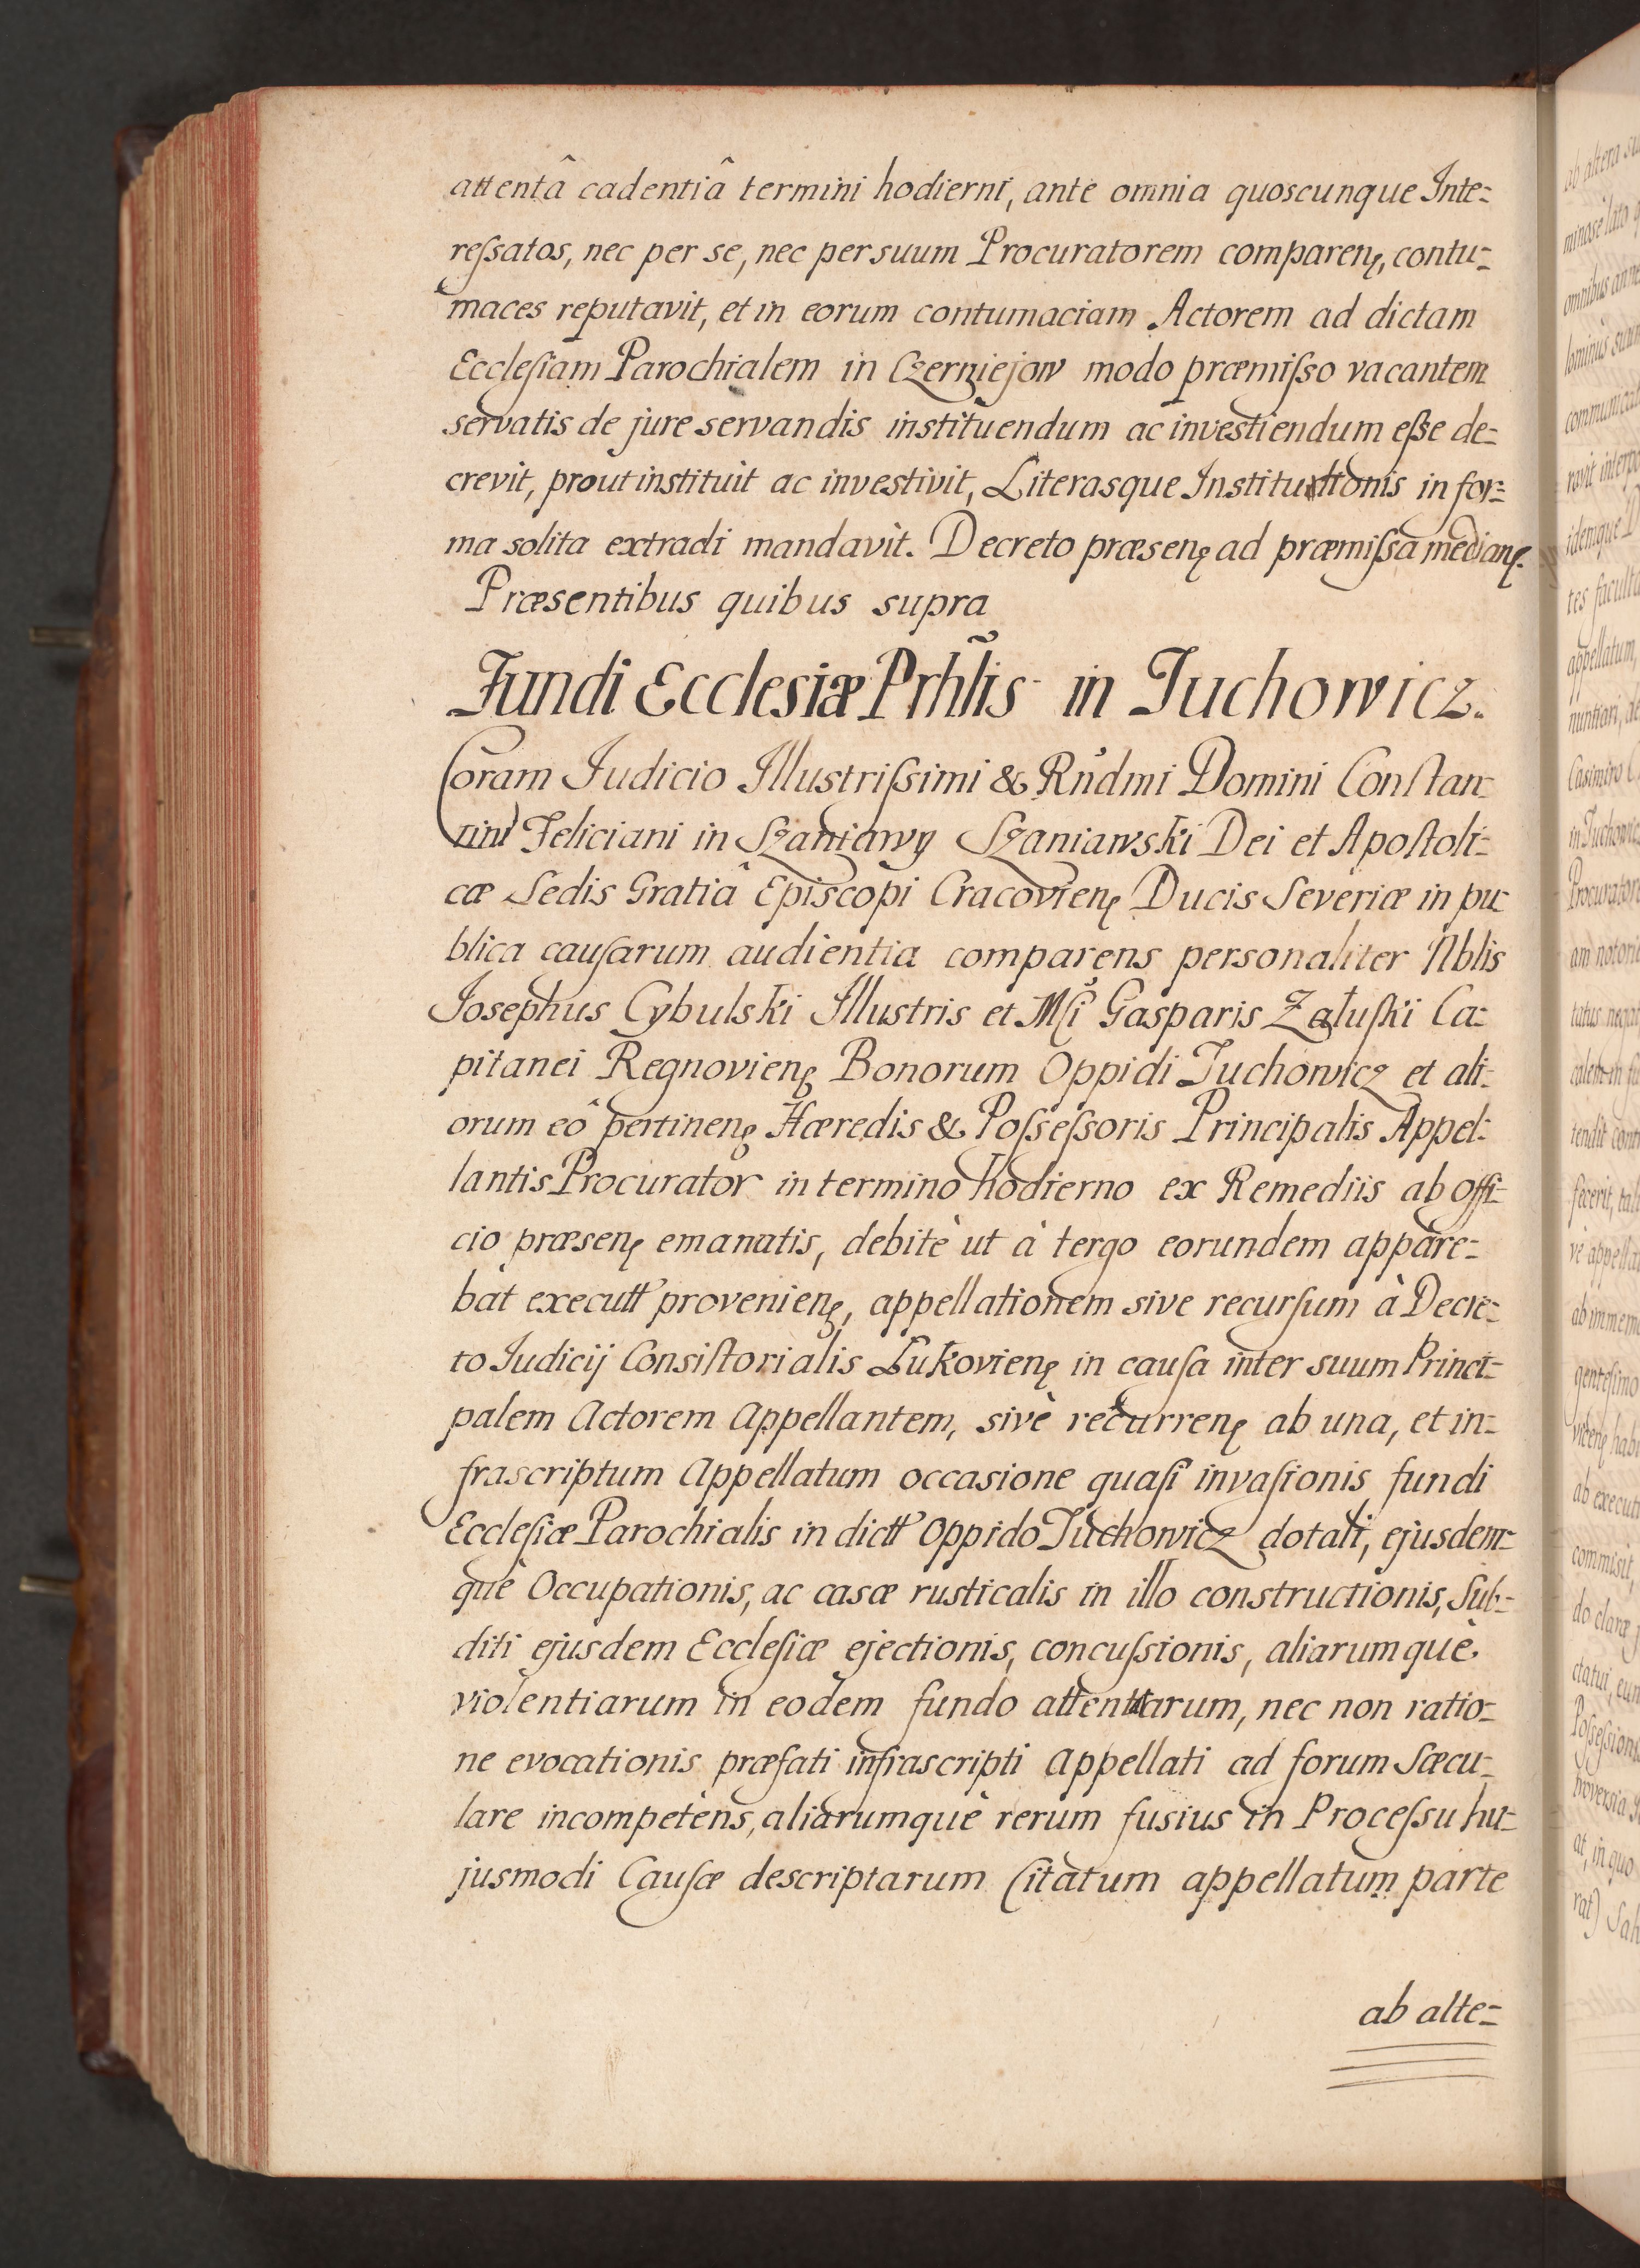 attentâ cadentiâ termini hodierni, ante omnia quoscunque Inte=
reſsatos, nec per se, nec per suum Procuratorem comparenꝭ, contu=
maces reputavit, et in eorum contumaciam Actorem ad dictam
Eccleſiam Parochialem in Czerniejow modo præmiſso vacantem
servatis de jure servandis instituendum ac investiendum eſse de=
crevit, prout instituit ac investivit, Literasque Institutionis in for=
ma solita extradi mandavit. Decreto præsenꝭ ad præmiſsa medianꝭ.
Præsentibus quibus supra
Fundi Ecclesiæ Prhlis in Tuchowicz.
Coram Judicio Illustriſsimi & Rńdmi Domini Conſtan=
tini Feliciani in Szaniawy Szaniawski Dei et Apoſtoli=
cæ Sedis Gratiâ Episcopi Cracovienꝭ Ducis Severiæ in pu=
blica cauſarum audientia comparens personaliter Nblis
Josephus Cybulski Illustris et Mſi Gasparis Załuſki Ca=
pitanei Regnovienꝭ Bonorum Oppidi Tuchowicz et ali=
orum eô pertinenꝭ Hæredis & Poſseſsoris Principalis Appel=
lantis Procurator in termino hodierno ex Remediis ab offi=
cio præsenꝭ emanatis, debitè ut à tergo eorundem appare=
bat executt provenienꝭ, appellationem sive recurſum à Decre=
to Judicij Conſiſtorialis Łukovienꝭ in cauſa inter suum Princi=
palem Actorem Appellantem, sivè recurrenꝭ ab una, et in=
frascriptum Appellatum occasione quaſi invaſionis fundi
Eccleſiæ Parochialis in dictt Oppido Tuchowicz dotati, ejusdem=
què Occupationis, ac casæ rusticalis in illo constructionis, Sub=
diti ejusdem Eccleſiæ ejectionis, concuſsionis, aliarumquè
violentiarum in eodem fundo attentarum, nec non ratio=
ne evocationis præfati infrascripti Appellati ad forum Sæcu=
lare incompetens, aliarumquè rerum fusius in Proceſsu hu=
jusmodi Cauſæ descriptarum Citatum appellatum parte
ab alte=